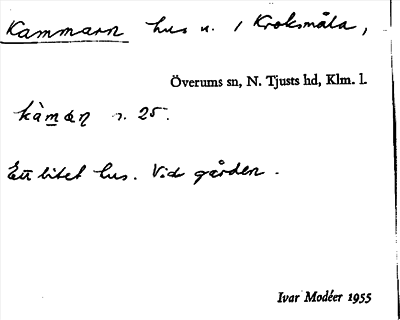 Kammarn hus u. / Kroksmåla,
Överums sn, N. Tjusts hd, Klm. l.
kàmaɳ s. 25.
Ett litet hus. Vid gården.
Ivar Modéer 1955